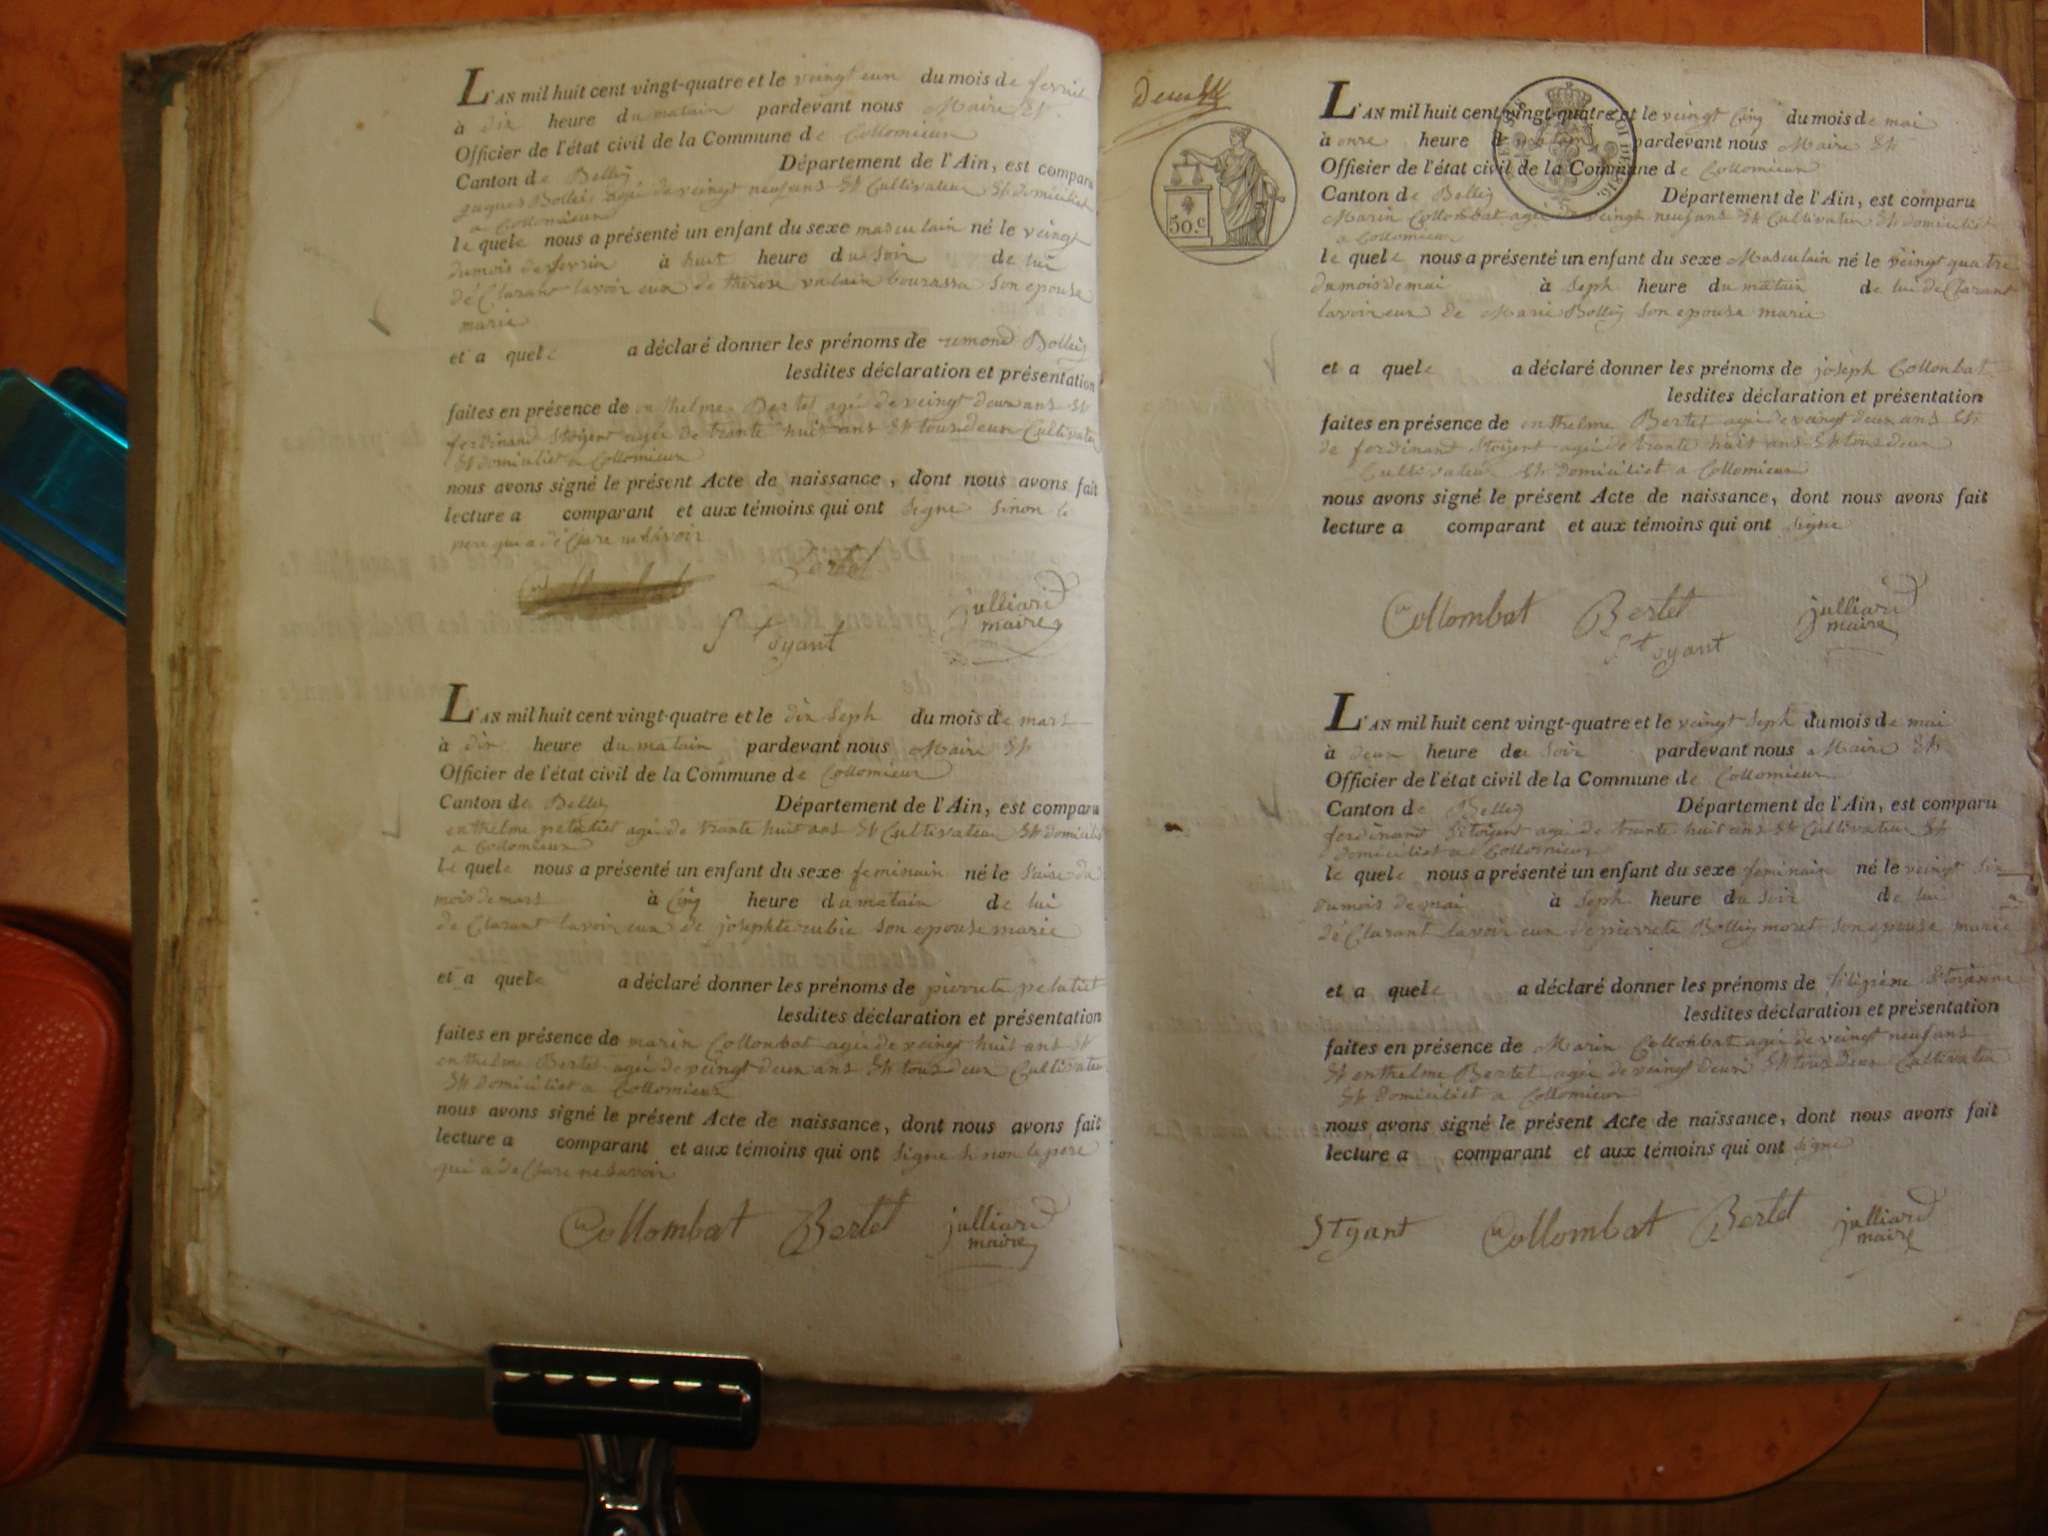 L'AN mil huit cent vingt-quatre et le veingt eun du mois de fevrié
à dix heure du matain pardevant nous Maire Et
Officier de l'état civil de la Commune de Collomieux
Canton de Belley Département de l'Ain, est comparu
jaques Bolley agé de veingt neuf ans Et Cultivateur Et domiciliet
a Collomieux
le quele nous a présenté un enfant du sexe masculain né le veingt
du mois de fevrie à huit heure du soir de lui
dé Clarant lavoir eux de therese bourassa son epouse
marie
et a quele a déclaré donner les prénoms de Bolley
lesdites déclaration et présentation
faites en présence de enthelme Bertet agé de veingt deux ans Et
ferdinand Stoyent agée de trante huit ans Et tous deux Cultivateu
Et domiciliet a Collomieux
nous avons signé le présent Acte de naissance, dont nous avons fait
lecture a comparant et aux témoins qui ont signe sinon le
pere qui a dé Clare ne savoir
Bertet
Styant
julliard
maire
L'AN mil huit cent vingt-quatre et le dix seph du mois de mars
à dix heure du matain pardevant nous Maire Et
Officier de l'état civil de la Commune de Collomieux
Canton de Belley Département de l'Ain, est comparu
enthelme pelatiet agé de trante huit ans Et Cultivateur Et domicilie
a Collomieux
le quele nous a présenté un enfant du sexe feminain né le saise du
mois de mars à Cinq heure du matain de lui
dé Clarant lavoir eux de josephte rubie son epouse marie
et a quele a déclaré donner les prénoms de pierrete pelatiet
lesdites déclaration et présentation
faites en présence de marin Collonbat agé de veingt huit ans Et
enthelme Bertet agé de veingt deux ans Et tous deux Cultivateu
Et domiciliet a Collomieux
nous avons signé le présent Acte de naissance, dont nous avons fait
lecture a comparant et aux témoins qui ont signe sinon le pere
qui a dé Clare ne savoir
Collombat Bertet julliard
maire
L'AN mil huit cent vingt-quatre et le veingt Cinq du mois de mai
à onze heure du matain pardevant nous Maire Et
Offisier de l'état civil de la Commune de Collomieux
Canton de Belley Département de l'Ain, est comparu
Marin Collombat agé de veingt neuf ans Et Cultivateu Et domiciliet
a Collomieux
50.c
le quele nous a présenté un enfant du sexe Masculain né le veingt quatre
du mois de mai à seph heure du matain de lui dé Clarant
lavoir eux de Marie Bolley son epouse marie
et a quele a déclaré donner les prénoms de joséph Collonbat
lesdites déclaration et présentation
faites en présence de enthelme Bertet agé de veingt deux ans Et
de ferdinand Stoyent agé de trante huit ans Et tous deux
Cultivateur Et domiciliet a Collomieux
nous avons signé le présent Acte de naissance, dont nous avons fait
lecture a comparant et aux témoins qui ont signe
Collombat Bertet julliard
maire
Styant
L'AN mil huit cent vingt-quatre et le veingt seph du mois de mai
à deux heure du soir pardevant nous Maire Et
Officier de l'état civil de la Commune de Collomieux
Canton de Belley Département de l'Ain, est comparu
ferdinand Stoyent agé de trante huit ans Et Cultivateu Et
domiciliet a Collomieux
le quele nous a présenté un enfant du sexe feminain né le veingt six
du mois de mai à seph heure du soir de lui
dé Clarant lavoir eux de pierrete Bolley moret son epouse marie
et a quele a déclaré donner les prénoms de
lesdites déclaration et présentation
faites en présence de Marin Collonbat agé de veingt neuf ans
Et enthelme Bertet agé de veingt deux Et tous deux Cultivateu
Et domiciliet a Collomieux
nous avons signé le présent Acte de naissance, dont nous avons fait
lecture a comparant et aux témoins qui ont signe
Styant Collombat Bertet julliard
maire